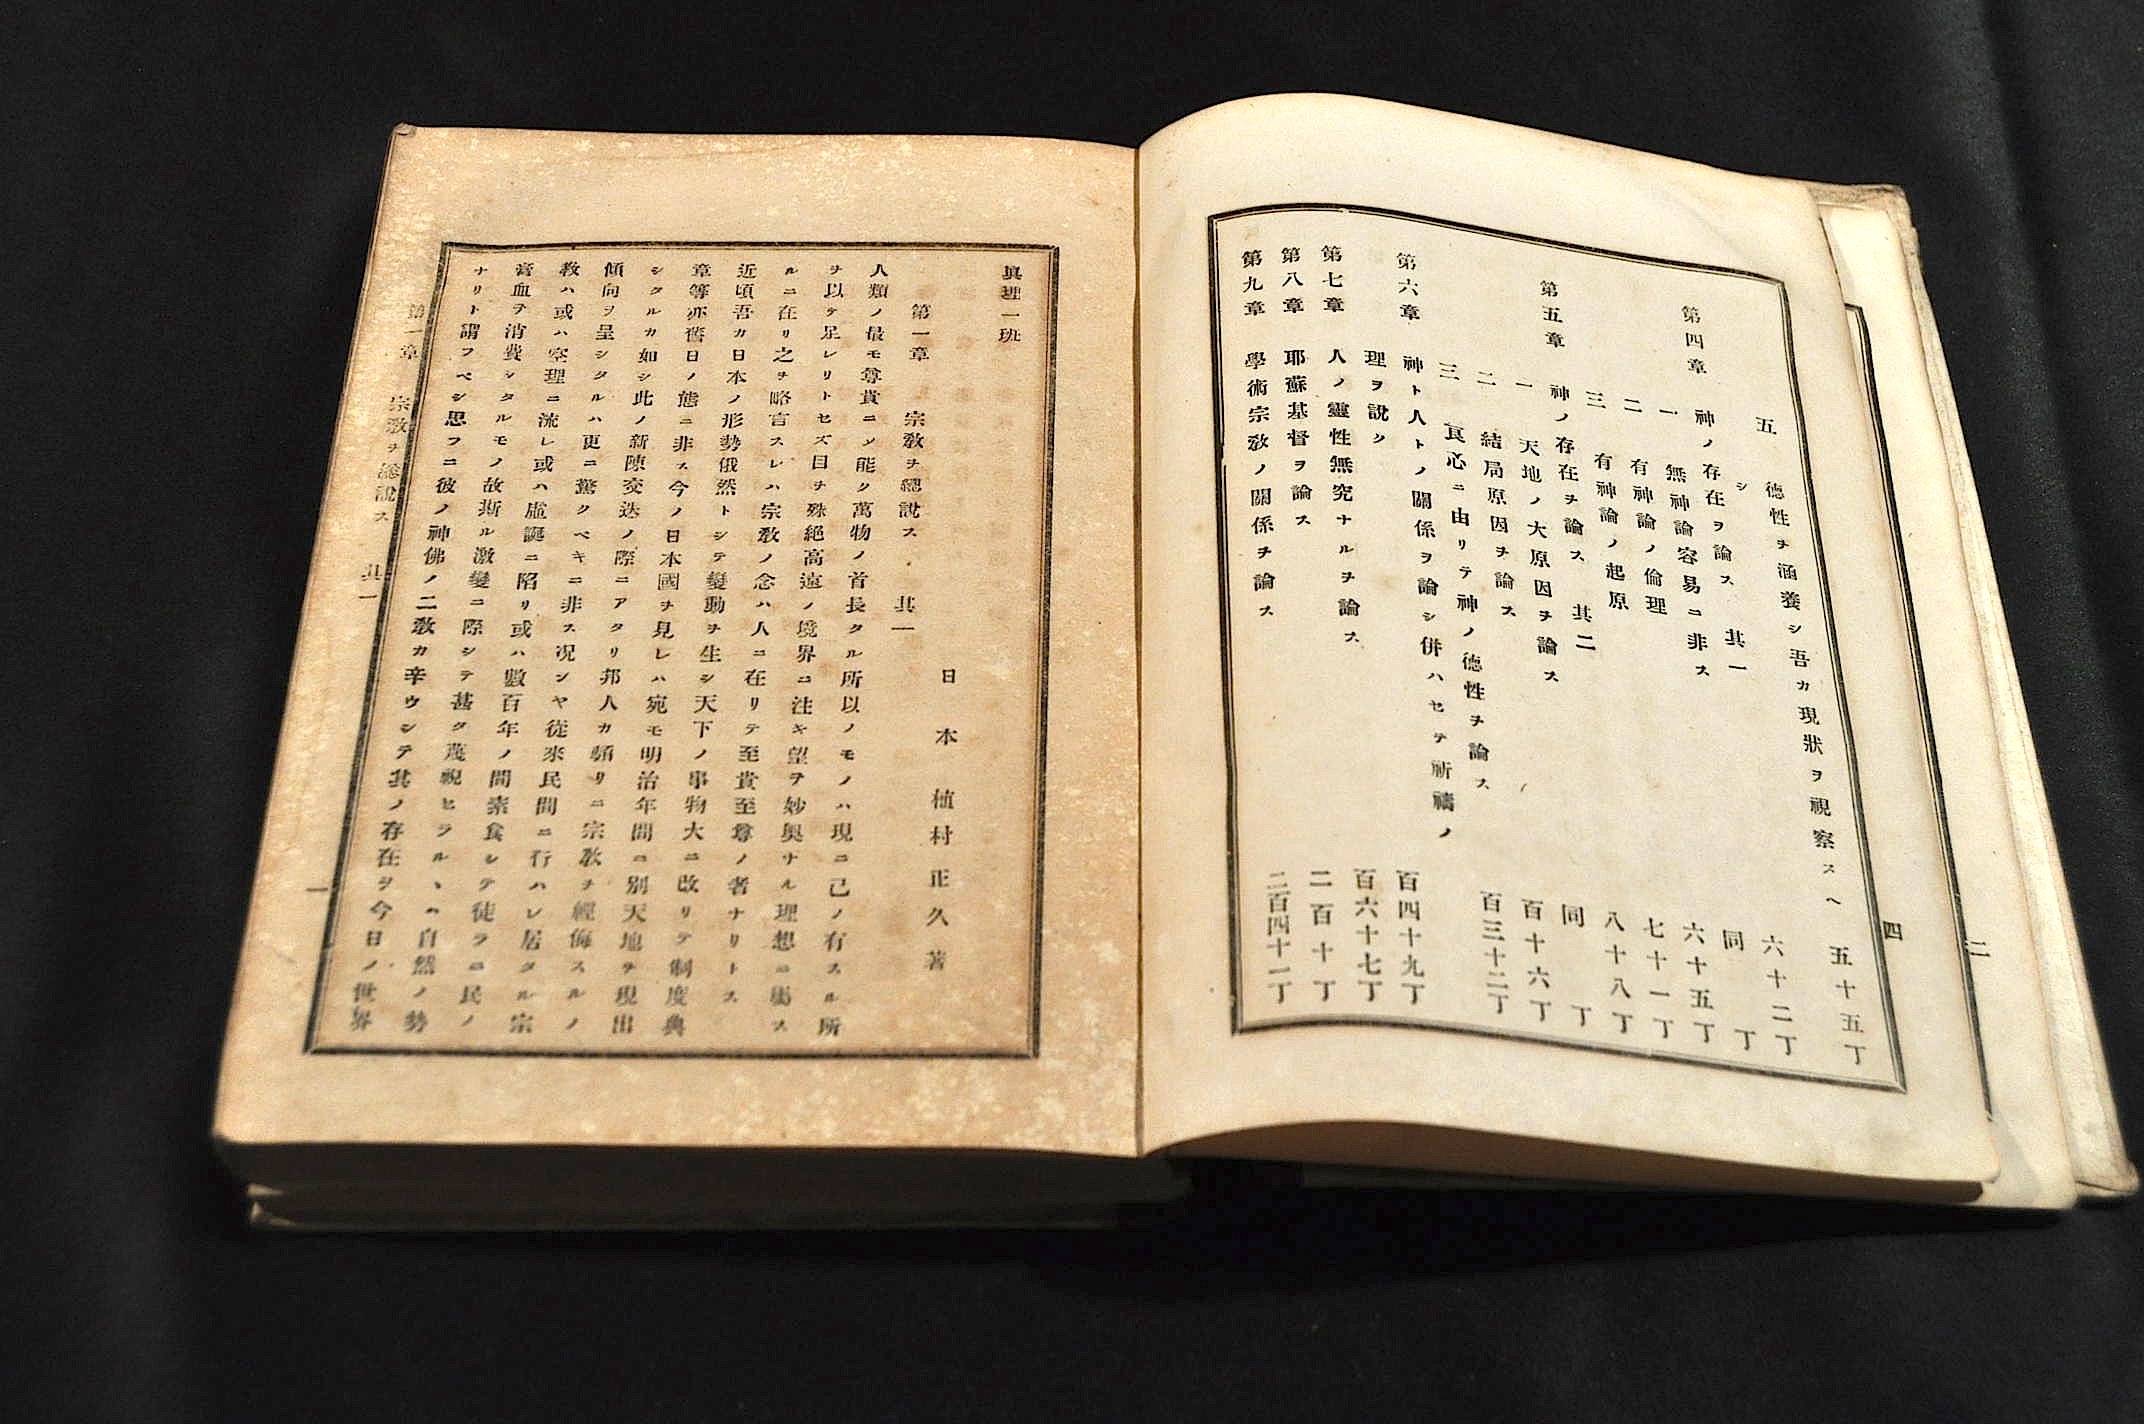 五 德性ヲ涵養シ吾カ現狀ヲ視察スヘ 五十五丁
シ
第四章 神ノ存在ヲ論ス 其一 六十二丁
一 無神論容易ニ非ス 同 丁
二 有神論ノ倫理 六十五丁
三 有神論ノ起原 七十一丁
第五章 神ノ存在ヲ論ス 其二 八十八丁
一 天地ノ大原因ヲ論ス 同 丁
二 結局原因ヲ論ス 百十六丁
三 良心ニ由リテ神ノ德性ヲ論ス 百三十二丁
第六章 神ト人トノ關係ヲ論シ併ハセテ祈禱ノ
理ヲ說ク 百四十九丁
第七章 人ノ靈性無究ナルヲ論ス 百六十七丁
第八章 耶蘇基督ヲ論ス 二百十丁
第九章 學術宗敎ノ關係ヲ論ス 二百四十一丁
四
二
眞理一斑
日本 植村正久著
第一章 宗敎ヲ總說ス 其一
人類ノ最モ尊貴ニシ能ク萬物ノ首長タル所以ノモノハ現ニ己ノ有スル所
ヲ以テ足レリトセズ目ヲ殊絕高遠ノ境界ニ注キ望ヲ妙奧ナル理想ニ屬ス
ルニ在リ之ヲ略言スレハ宗敎ノ念ハ人ニ在リテ至貴至尊ノ者ナリトス
近頃吾カ日本ノ形勢俄然トシテ變動ヲ生シ天下ノ事物大ニ改リテ制度典
章等亦舊日ノ態ニ非ス今ノ日本國ヲ見レハ宛モ明治年間ニ別天地ヲ現出
シタルカ如シ此ノ新陳交迭ノ際ニアタリ邦人カ頻リニ宗敎ヲ輕侮スルノ
傾向ヲ呈シタルハ更ニ驚クベキニ非ス况ンヤ從來民間ニ行ハレ居タル宗
敎ハ或ハ空理ニ流レ或ハ虛誕ニ陷リ或ハ數百年ノ間素食シテ徒ラニ民ノ
膏血ヲ消費シタルモノ故斯ル激變ニ際シテ甚タ蔑視セラルヽハ自然ノ勢
ナリト謂フベシ思フニ彼ノ神佛ノ二敎カ辛ウシテ其ノ存在ヲ今日ノ世界
第一章 宗敎ヲ總說ス 其一
一